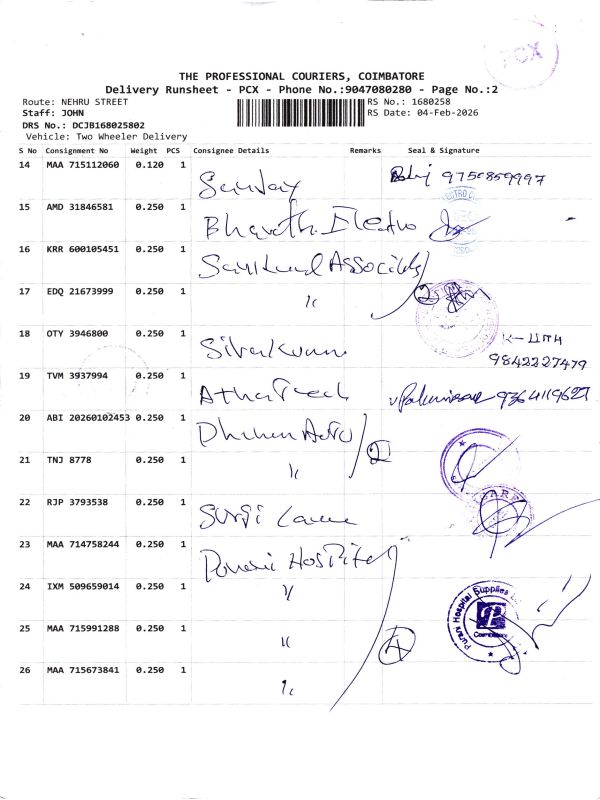 PCX
THE PROFESSIONAL COURIERS, COIMBATORE
Delivery Runsheet - PCX - Phone No.:9047080280 - Page No.:2
Route: NEHRU STREET RS No.: 1680258
Staff: JOHN RS Date: 04-Feb-2026
DRS No.: DCJB168025802
Vehicle: Two Wheeler Delivery
S No Consignment No Weight PCS Consignee Details Remarks Seal & Signature
14 MAA 715112060 0.120 1 9750859997
15 AMD 31846581 0.250 1 Bharath Electro
16 KRR 600105451 0.250 1
17 EDQ 21673999 0.250 1 " 2
18 OTY 3946800 0.250 1 9842227479
19 TVM 3937994 0.250 1 9364119627
20 ABI 20260102453 0.250 1 2
21 TNJ 8778 0.250 1 "
22 RJP 3793538 0.250 1 Surgi
23 MAA 714758244 0.250 1 Hospital
24 IXM 509659014 0.250 1 " Hospital Supplies
25 MAA 715991288 0.250 1 " 4 Coimbatore
26 MAA 715673841 0.250 1 "